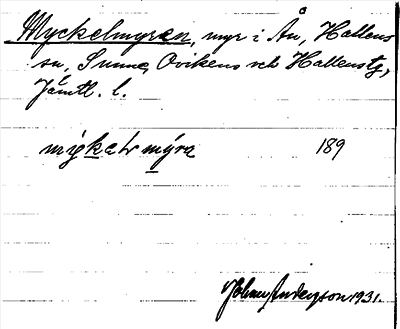 Myckelmyren, myr i Ån, Hallens
sn, Sunne, Ovikens och Hallens tg,
Jämtl. l.
mỳkalr mýra 189
Johan Anderson 1931.